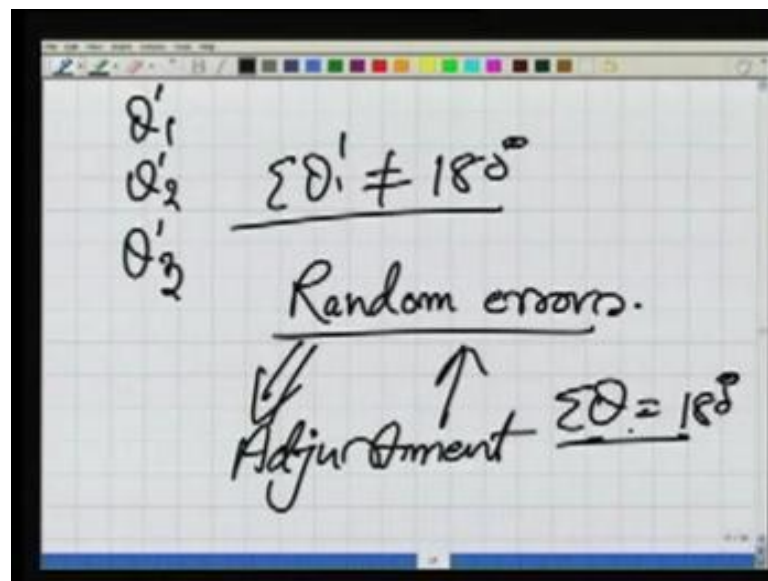 θ'1
θ'2
θ'3
Σθ' ≠ 180°
Random errors.
Adjustment Σθ = 180°